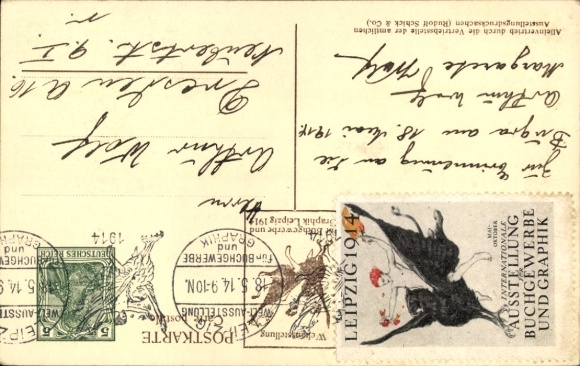 Alleinvertrieb durch die Vertriebsstelle der amtlichen
Ausstellungsdrucksachen (Rudolf Schick & Co.)
Zur Erinnerung an die
Bugra am 18. Mai 1914.
Arthur Wolf
Margarete Wolf
Herrn
Arthur Wolf
Dresden A 16.
POSTKARTE
DEUTSCHES REICH
5 5
1914
LEIPZIG
WELT-AUSSTELLUNG
für BUCHGEWERBE
und
GRAPHIK
18.5.14.9-10N.
1914
Buchgewerbe und
Graphik Leipzig 1914
LEIPZIG 1914
MAI-
OKTOBER
INTERNATIONALE
AUSSTELLUNG
BUCHGEWERBE
UND GRAPHIK